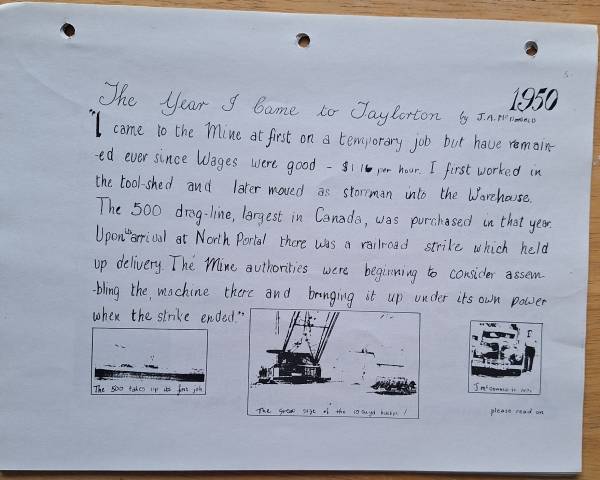 1950
The Year I Came to Taylorton by J.A. McDonald
"I came to the Mine at first on a temporary job but have remain-
-ed ever since Wages were good - $1.16 per hour. I first worked in
the tool-shed and later moved as storman into the Warehouse.
The 500 drag-line, largest in Canada, was purchased in that year.
Upon its arrival at North Portal there was a railroad strike which held
up delivery. The Mine authorities were beginning to consider assem-
-bling the machine there and bringing it up under its own power
when the strike ended."
The 500 takes up its first job
The great size of the 10 cuyd bucket!
please read on